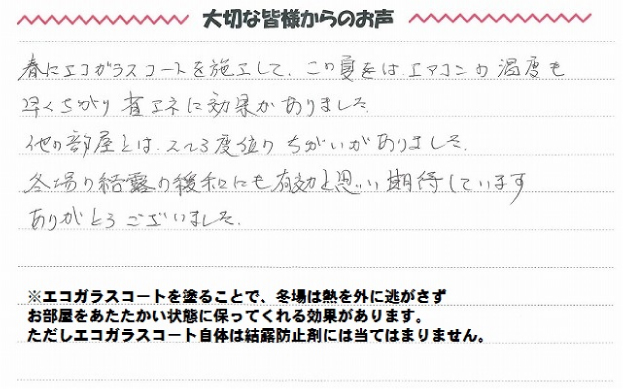 大切な皆様からのお声
春にエコガラスコートを施工して、この夏をは、エアコンの温度も
早くちがり省エネに効果がありました。
他の部屋とは、2~3度位のちがいがありました。
冬場の結露の緩和にも有効と思い期待しています
ありがとうございました。
※エコガラスコートを塗ることで、冬場は熱を外に逃がさず
お部屋をあたたかい状態に保ってくれる効果があります。
ただしエコガラスコート自体は結露防止剤には当てはまりません。